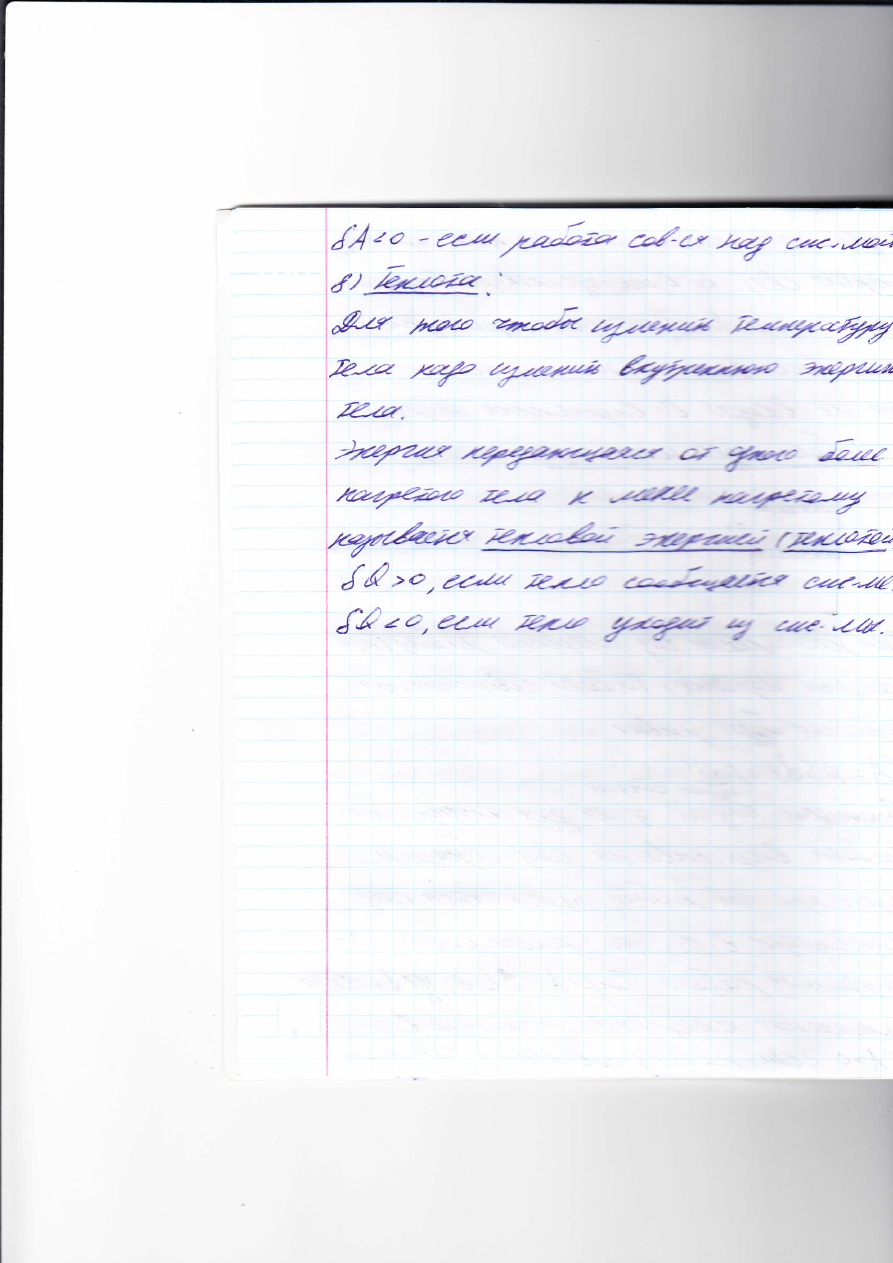 δA<0 – если работа сов-ся над сис-мой
8) Теплота:
Для того чтобы изменить температуру
тела надо изменить внутреннюю энергию
тела.
Энергия передающаяся от одного боле
нагретого тела к менее нагретому
называется тепловой энергией (теплотой
δQ>0, если тепло сообщается сис-ме.
δQ<0, если тепло уходит из сис-мы.